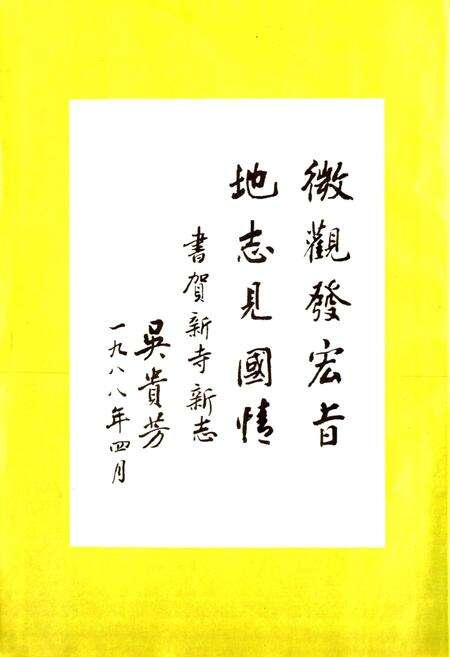 微觀發宏旨
地志見國情
書賀新寺新志
吳貴芳
一九八八年四月